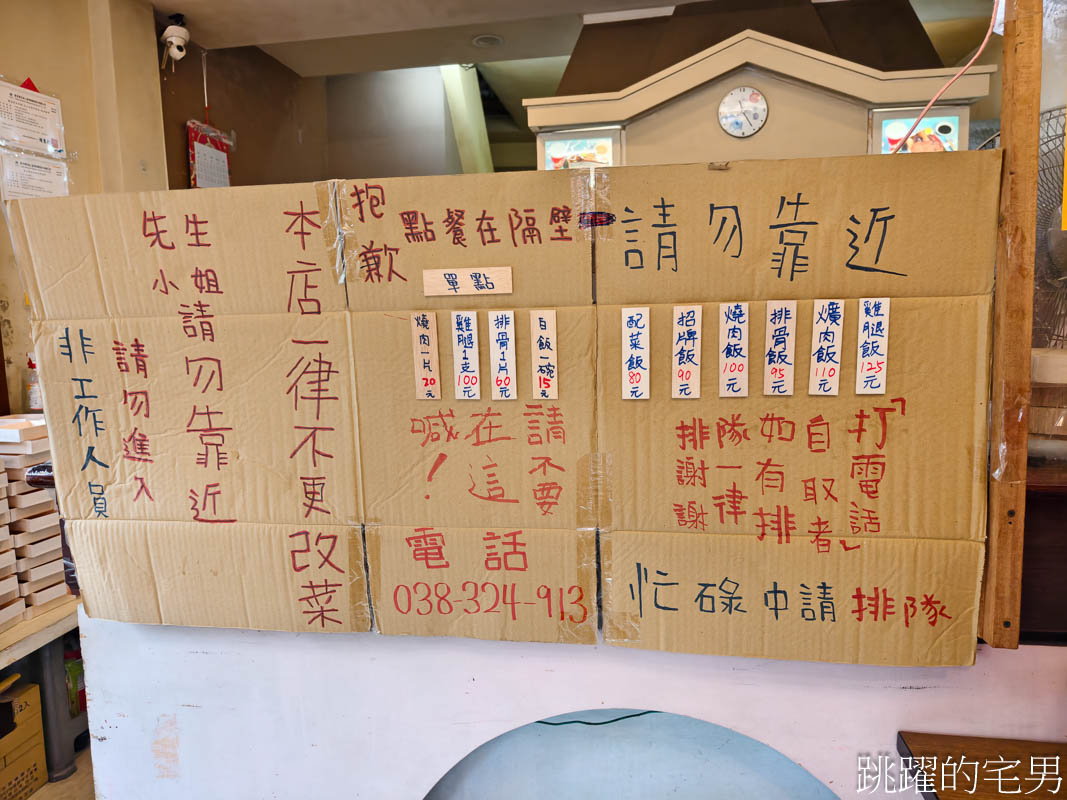 請勿靠近
雞腿飯125元
爌肉飯110元
排骨飯95元
燒肉飯100元
招牌飯90元
配菜飯80元
「打電話
自取者」
如有排
隊一律
排謝謝
忙碌中請排隊
抱歉
點餐在隔壁
單點
白飯一碗15元
排骨1片60元
雞腿1支100元
燒肉一片20元
請不要
在這
喊！
電話
038-324-913
本店一律不更改菜
先生
小姐
請勿靠近
請勿進入
非工作人員
跳躍的宅男